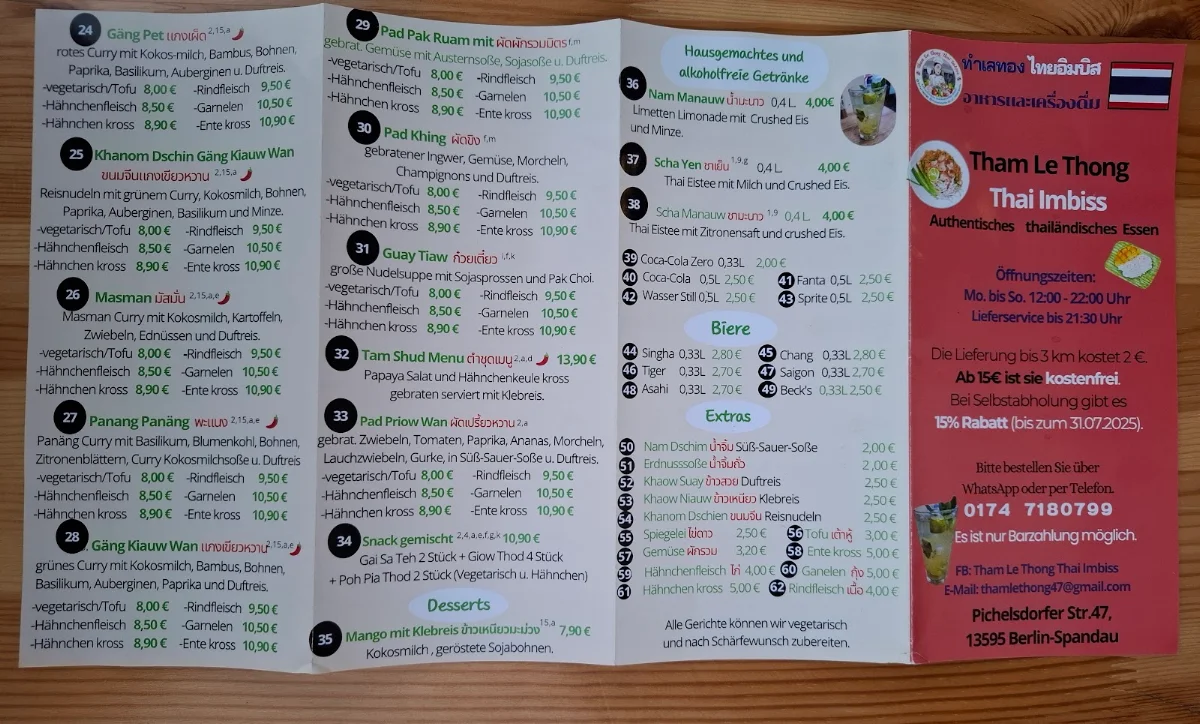 24 Gäng Pet แกงเผ็ด 2,15,a
rotes Curry mit Kokos-milch, Bambus, Bohnen,
Paprika, Basilikum, Auberginen u. Duftreis.
-vegetarisch/Tofu 8,00 € -Rindfleisch 9,50 €
-Hähnchenfleisch 8,50 € -Garnelen 10,50 €
-Hähnchen kross 8,90 € -Ente kross 10,90 €
25 Khanom Dschin Gäng Kiauw Wan
ขนมจีนแกงเขียวหวาน 2,15,a
Reisnudeln mit grünem Curry, Kokosmilch, Bohnen,
Paprika, Auberginen, Basilikum und Minze.
-vegetarisch/Tofu 8,00 € -Rindfleisch 9,50 €
-Hähnchenfleisch 8,50 € -Garnelen 10,50 €
-Hähnchen kross 8,90 € -Ente kross 10,90 €
26 Masman มัสมั่น 2,15,a,e
Masman Curry mit Kokosmilch, Kartoffeln,
Zwiebeln, Ednüssen und Duftreis.
-vegetarisch/Tofu 8,00 € -Rindfleisch 9,50 €
-Hähnchenfleisch 8,50 € -Garnelen 10,50 €
-Hähnchen kross 8,90 € -Ente kross 10,90 €
27 Panang Panäng พะแนง 2,15,a,e
Panäng Curry mit Basilikum, Blumenkohl, Bohnen,
Zitronenblättern, Curry Kokosmilchsoße u. Duftreis
-vegetarisch/Tofu 8,00 € -Rindfleisch 9,50 €
-Hähnchenfleisch 8,50 € -Garnelen 10,50 €
-Hähnchen kross 8,90 € -Ente kross 10,90 €
28 . Gäng Kiauw Wan แกงเขียวหวาน 2,15,a,e
grünes Curry mit Kokosmilch, Bambus, Bohnen,
Basilikum, Auberginen, Paprika und Duftreis.
-vegetarisch/Tofu 8,00 € -Rindfleisch 9,50 €
-Hähnchenfleisch 8,50 € -Garnelen 10,50 €
-Hähnchen kross 8,90 € -Ente kross 10,90 €
29 Pad Pak Ruam mit ผัดผักรวมมิตร f,m
gebrat. Gemüse mit Austernsoße, Sojasoße u. Duftreis.
-vegetarisch/Tofu 8,00 € -Rindfleisch 9,50 €
-Hähnchenfleisch 8,50 € -Garnelen 10,50 €
-Hähnchen kross 8,90 € -Ente kross 10,90 €
30 Pad Khing ผัดขิง f,m
gebratener Ingwer, Gemüse, Morcheln,
Champignons und Duftreis.
-vegetarisch/Tofu 8,00 € -Rindfleisch 9,50 €
-Hähnchenfleisch 8,50 € -Garnelen 10,50 €
-Hähnchen kross 8,90 € -Ente kross 10,90 €
31 Guay Tiaw ก๋วยเตี๋ยว i,f,k
große Nudelsuppe mit Sojasprossen und Pak Choi.
-vegetarisch/Tofu 8,00 € -Rindfleisch 9,50 €
-Hähnchenfleisch 8,50 € -Garnelen 10,50 €
-Hähnchen kross 8,90 € -Ente kross 10,90 €
32 Tam Shud Menu ตำชุดเมนู 2,a,d 13,90 €
Papaya Salat und Hähnchenkeule kross
gebraten serviert mit Klebreis.
33 Pad Priow Wan ผัดเปรี้ยวหวาน 2,a
gebrat. Zwiebeln, Tomaten, Paprika, Ananas, Morcheln,
Lauchzwiebeln, Gurke, in Süß-Sauer-Soße u. Duftreis.
-vegetarisch/Tofu 8,00 € -Rindfleisch 9,50 €
-Hähnchenfleisch 8,50 € -Garnelen 10,50 €
-Hähnchen kross 8,90 € -Ente kross 10,90 €
34 Snack gemischt 2,4,a,e,f,g,k 10,90 €
Gai Sa Teh 2 Stück + Giow Thod 4 Stück
+ Poh Pia Thod 2 Stück (Vegetarisch u. Hähnchen)
Desserts
35 Mango mit Klebreis ข้าวเหนียวมะม่วง 15,a 7,90 €
Kokosmilch , geröstete Sojabohnen.
Hausgemachtes und
alkoholfreie Getränke
36 Nam Manauw น้ำมะนาว 0,4 L 4,00€
Limetten Limonade mit Crushed Eis
und Minze.
37 Scha Yen ชาเย็น 1,9,g 0,4 L 4,00 €
Thai Eistee mit Milch und Crushed Eis.
38 Scha Manauw ชามะนาว 1,9 0,4 L 4,00 €
Thai Eistee mit Zitronensaft und crushed Eis.
39 Coca-Cola Zero 0,33L 2,00 €
40 Coca-Cola 0,5L 2,50 € 41 Fanta 0,5L 2,50 €
42 Wasser Still 0,5L 2,50 € 43 Sprite 0,5L 2,50 €
Biere
44 Singha 0,33L 2,80 € 45 Chang 0,33L 2,80 €
46 Tiger 0,33L 2,70 € 47 Saigon 0,33L 2,70 €
48 Asahi 0,33L 2,70 € 49 Beck's 0,33L 2,50 €
Extras
50 Nam Dschim น้ำจิ้ม Süß-Sauer-Soße 2,00 €
51 Erdnusssoße น้ำจิ้มถั่ว 2,00 €
52 Khaow Suay ข้าวสวย Duftreis 2,50 €
53 Khaow Niauw ข้าวเหนียว Klebreis 2,50 €
54 Khanom Dschien ขนมจีน Reisnudeln 2,50 €
55 Spiegelei ไข่ดาว 2,50 € 56 Tofu เต้าหู้ 3,00 €
57 Gemüse ผักรวม 3,20 € 58 Ente kross 5,00 €
59 Hähnchenfleisch ไก่ 4,00 € 60 Ganelen กุ้ง 5,00 €
61 Hähnchen kross 5,00 € 62 Rindfleisch เนื้อ 4,00 €
Alle Gerichte können wir vegetarisch
und nach Schärfewunsch zubereiten.
ทำเลทอง ไทยอิมบิส
อาหารและเครื่องดื่ม
Tham Le Thong
Thai Imbiss
Authentisches thailändisches Essen
Öffnungszeiten:
Mo. bis So. 12:00 - 22:00 Uhr
Lieferservice bis 21:30 Uhr
Die Lieferung bis 3 km kostet 2 €.
Ab 15€ ist sie kostenfrei.
Bei Selbstabholung gibt es
15% Rabatt (bis zum 31.07.2025).
Bitte bestellen Sie über
WhatsApp oder per Telefon.
0174 7180799
Es ist nur Barzahlung möglich.
FB: Tham Le Thong Thai Imbiss
E-Mail: thamlethong47@gmail.com
Pichelsdorfer Str.47,
13595 Berlin-Spandau